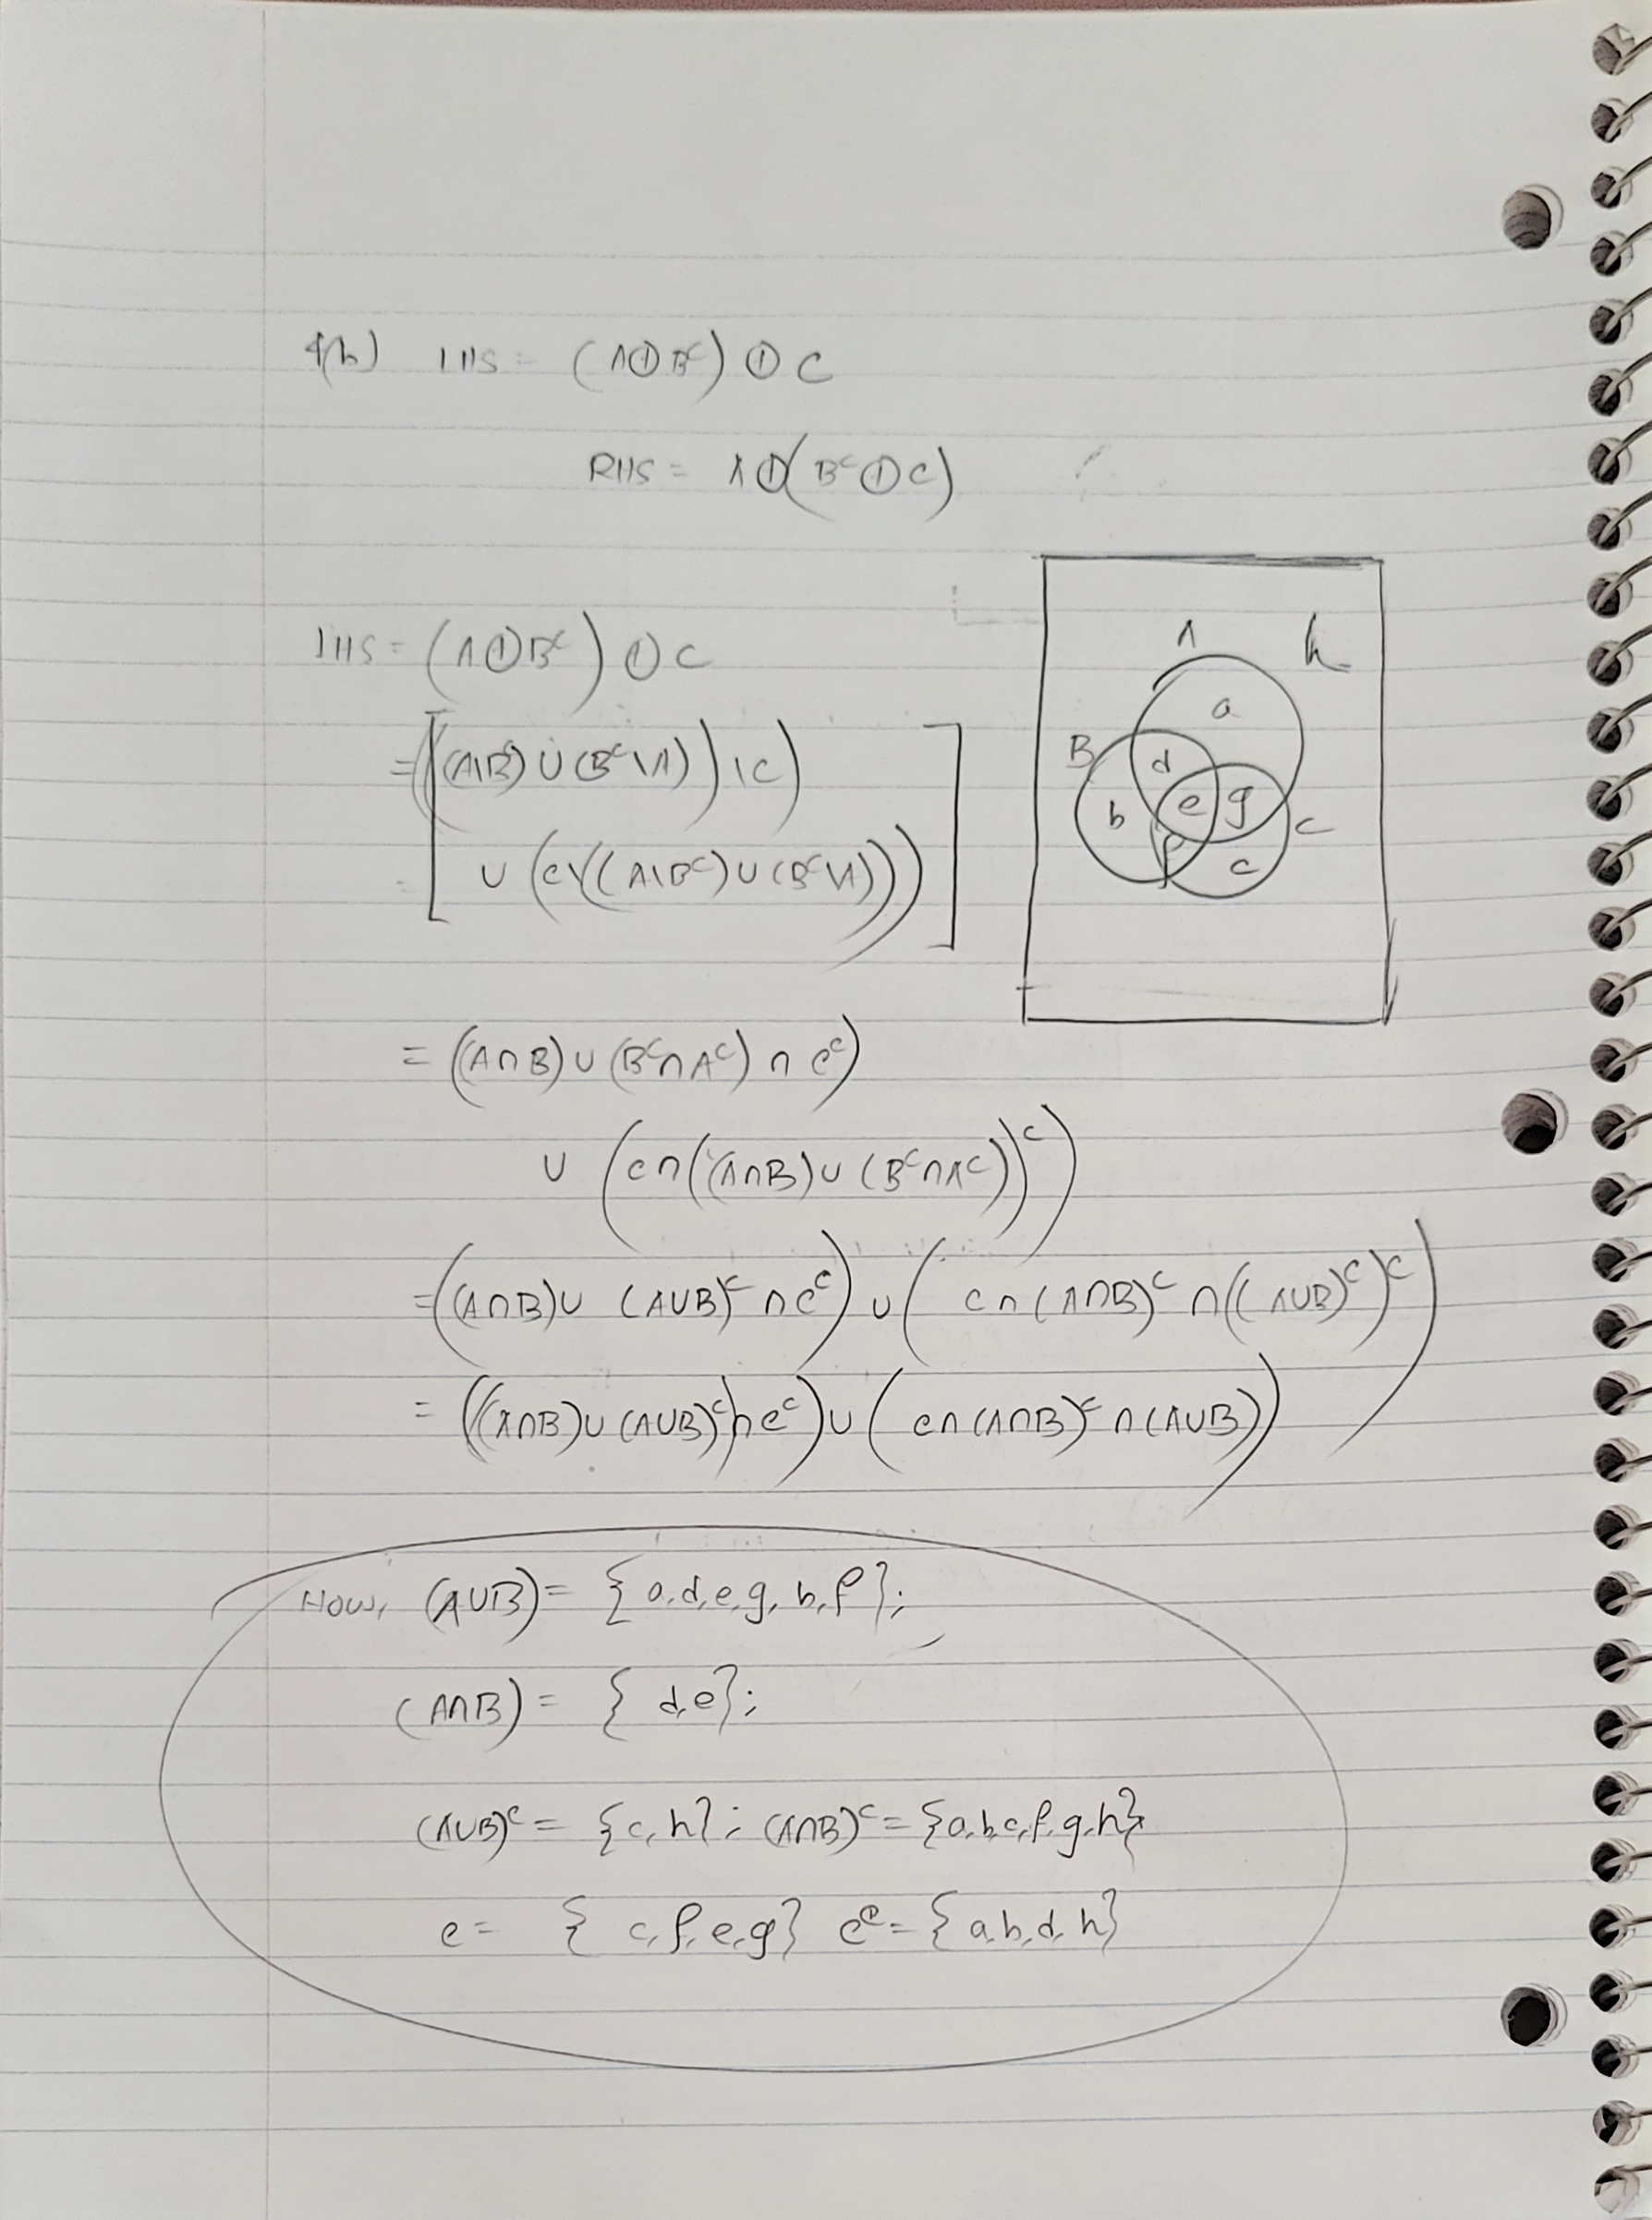 4(b) LHS = (A⊕Bᶜ) ⊕ C
RHS = A⊕(Bᶜ⊕C)
A
h
B
a
d
b
e
g
f
c
C
LHS = (A⊕Bᶜ) ⊕ C
= [((A\Bᶜ) ∪ (Bᶜ\A)) \C)
∪ (C\((A\Bᶜ) ∪ (Bᶜ\A)))]
= ((A∩B) ∪ (Bᶜ∩Aᶜ) ∩ Cᶜ)
∪ (C∩((A∩B) ∪ (Bᶜ∩Aᶜ))ᶜ)
= ((A∩B) ∪ (A∪B)ᶜ ∩ Cᶜ) ∪ (C ∩ (A∩B)ᶜ ∩ ((A∪B)ᶜ)ᶜ)
= (((A∩B) ∪ (A∪B)ᶜ) ∩ Cᶜ) ∪ (C∩(A∩B)ᶜ ∩ (A∪B))
Now, (A∪B) = {a,d,e,g,b,f};
(A∩B) = {d,e};
(A∪B)ᶜ = {c,h}; (A∩B)ᶜ = {a,b,c,f,g,h}
C = {c,f,e,g} Cᶜ = {a,b,d,h}